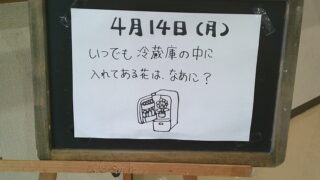 4月14日(月)
いつでも冷蔵庫の中に
入れてある花は、なあに？